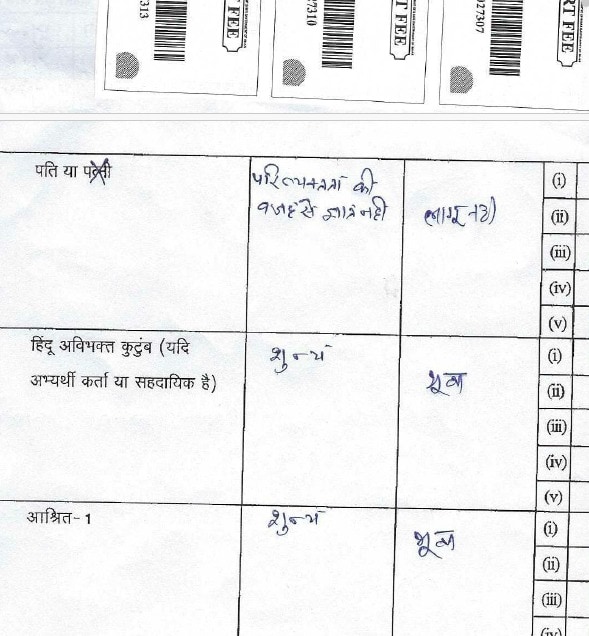 313
T FEE
27310
RT FEE
27307
RT FEE
पति या पत्नी
परित्यक्तता की
वजह से ज्ञात नही
लागू नही
(i)
(ii)
(iii)
(iv)
(v)
हिंदू अविभक्त कुटुंब (यदि
अभ्यर्थी कर्ता या सहदायिक है)
शुन्य
(i)
(ii)
(iii)
(iv)
(v)
आश्रित- 1
शुन्य
(i)
(ii)
(iii)
(iv)